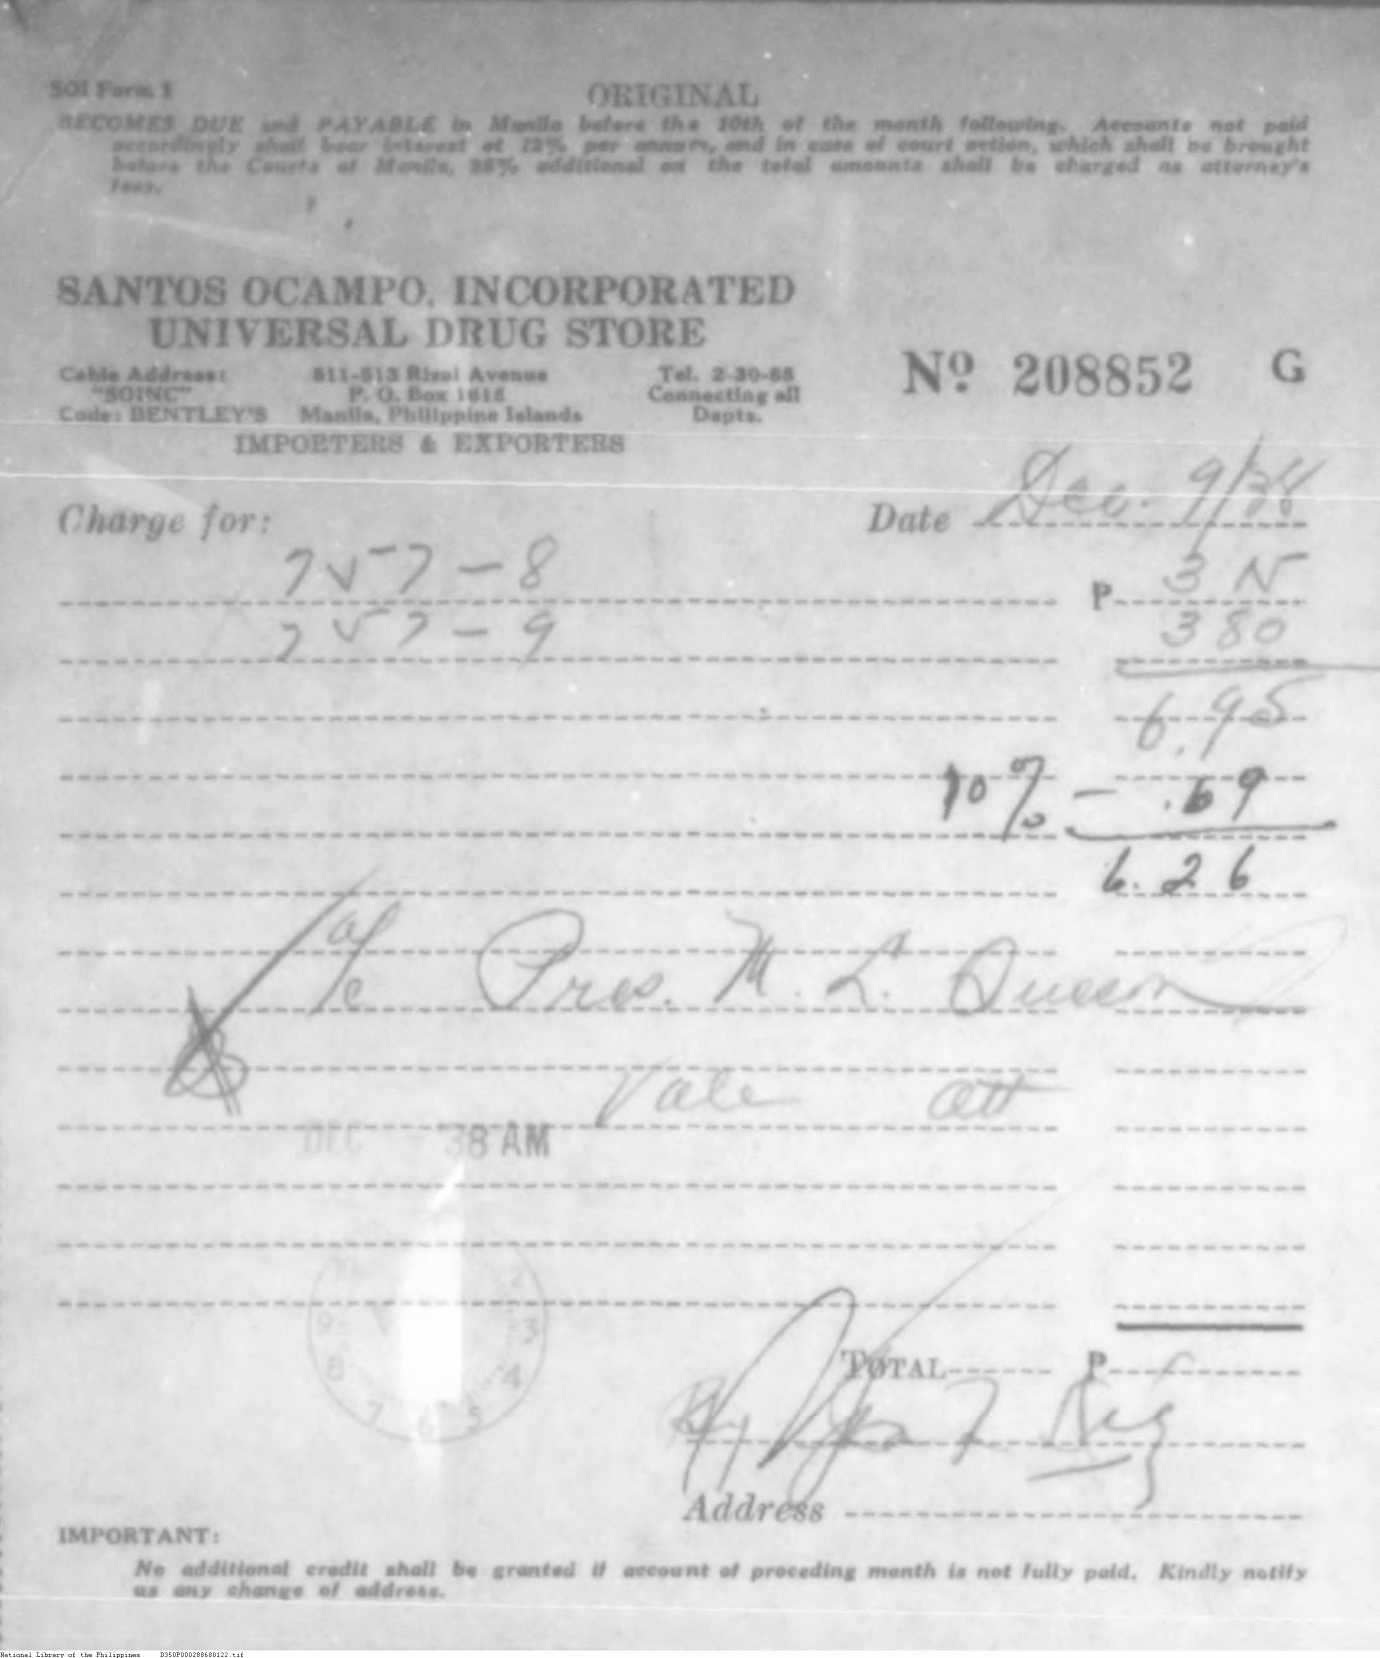 SOI Form 1
ORIGINAL
BECOMES DUE and PAYABLE in Manila before the 10th of the month following. Accounts not paid
accordingly shall bear interest at 12% per annum, and in case of court action, which shall be brought
before the Courts of Manila, 25% additional on the total amounts shall be charged as attorney's
fees.
SANTOS OCAMPO, INCORPORATED
UNIVERSAL DRUG STORE
Cable Address: 511-513 Rizal Avenue Tel. 2-30-65
"SOINC" P. O. Box 1615 Connecting all
Code: BENTLEY'S Manila, Philippine Islands Depts.
IMPORTERS & EXPORTERS
Nº 208852 G
Charge for: Date Dec. 9/38
757-8 P 3
757-9 3 80
6.95
10% - .69
6.26
a/c Pres. M. L. Quezon
Vale
DEC 38 AM
3
9
4
8
5
6
7
TOTAL P
By
Address
IMPORTANT:
No additional credit shall be granted if account of preceding month is not fully paid. Kindly notify
us any change of address.
National Library of the Philippines D350P000288680122.tif